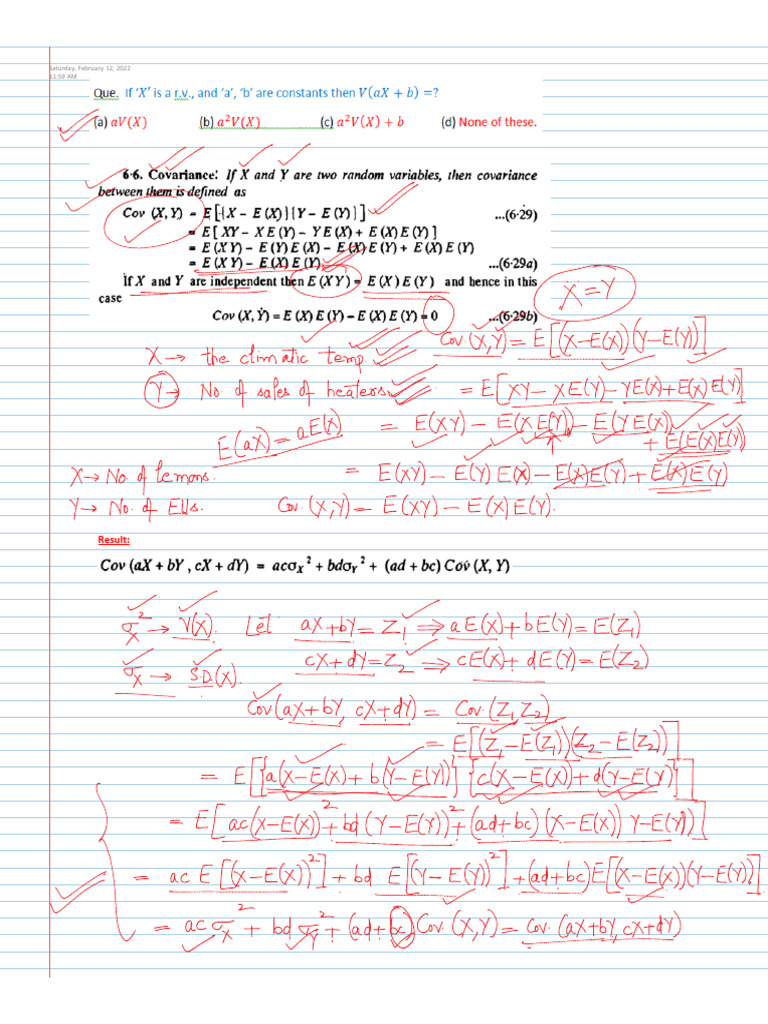 Saturday, February 12, 2022
11:59 AM
Que. If ‘X’ is a r.v., and ‘a’, ‘b’ are constants then V(aX + b) =?
(a) aV(X) (b) a²V(X) (c) a²V(X) + b (d) None of these.
6·6. Covariance: If X and Y are two random variables, then covariance
between them is defined as
Cov (X, Y) = E [{X – E (X)}{Y – E (Y)}] ...(6·29)
= E [ XY – X E (Y) – Y E (X) + E (X) E (Y) ]
= E (X Y) – E (Y) E (X) – E (X) E (Y) + E (X) E (Y)
= E (X Y) – E (X) E (Y) ...(6·29a)
If X and Y are independent then E (X Y) = E (X) E (Y) and hence in this
case
Cov (X, Y) = E (X) E (Y) – E (X) E (Y) = 0 ...(6·29b)
X = Y
Cov (X,Y) = E[(X–E(X))(Y–E(Y))]
X → the climatic temp.
Y → No. of sales of heaters. = E[XY – XE(Y) – YE(X) + E(X)E(Y)]
E(aX) = aE(X) = E(XY) – E(XE(Y)) – E(YE(X)) + E(E(X)E(Y))
X → No. of lemons. = E(XY) – E(Y)E(X) – E(X)E(Y) + E(X)E(Y)
Y → No. of Ells. Cov. (X,Y) = E(XY) – E(X)E(Y).
Result:
Cov (aX + bY , cX + dY) = acσX² + bdσY² + (ad + bc) Cov (X, Y)
σX² → V(X). Let aX+bY = Z₁ ⇒ aE(X)+bE(Y) = E(Z₁)
cX+dY = Z₂ ⇒ cE(X)+dE(Y) = E(Z₂)
σX → S.D.(X).
Cov(aX+bY, cX+dY) = Cov(Z₁Z₂)
= E[(Z₁–E(Z₁))(Z₂–E(Z₂))]
= E[{a(X–E(X)+b(Y–E(Y))} {c(X–E(X)+d(Y–E(Y)}]
= E[ac(X–E(X))²+bd(Y–E(Y))²+(ad+bc)(X–E(X)) Y–E(Y))]
= ac E[(X–E(X))²] + bd E[(Y–E(Y))²] + (ad+bc)E[(X–E(X))(Y–E(Y))]
= ac σX² + bd σY² + (ad+bc) Cov (X,Y) = Cov. (aX+bY, cX+dY)